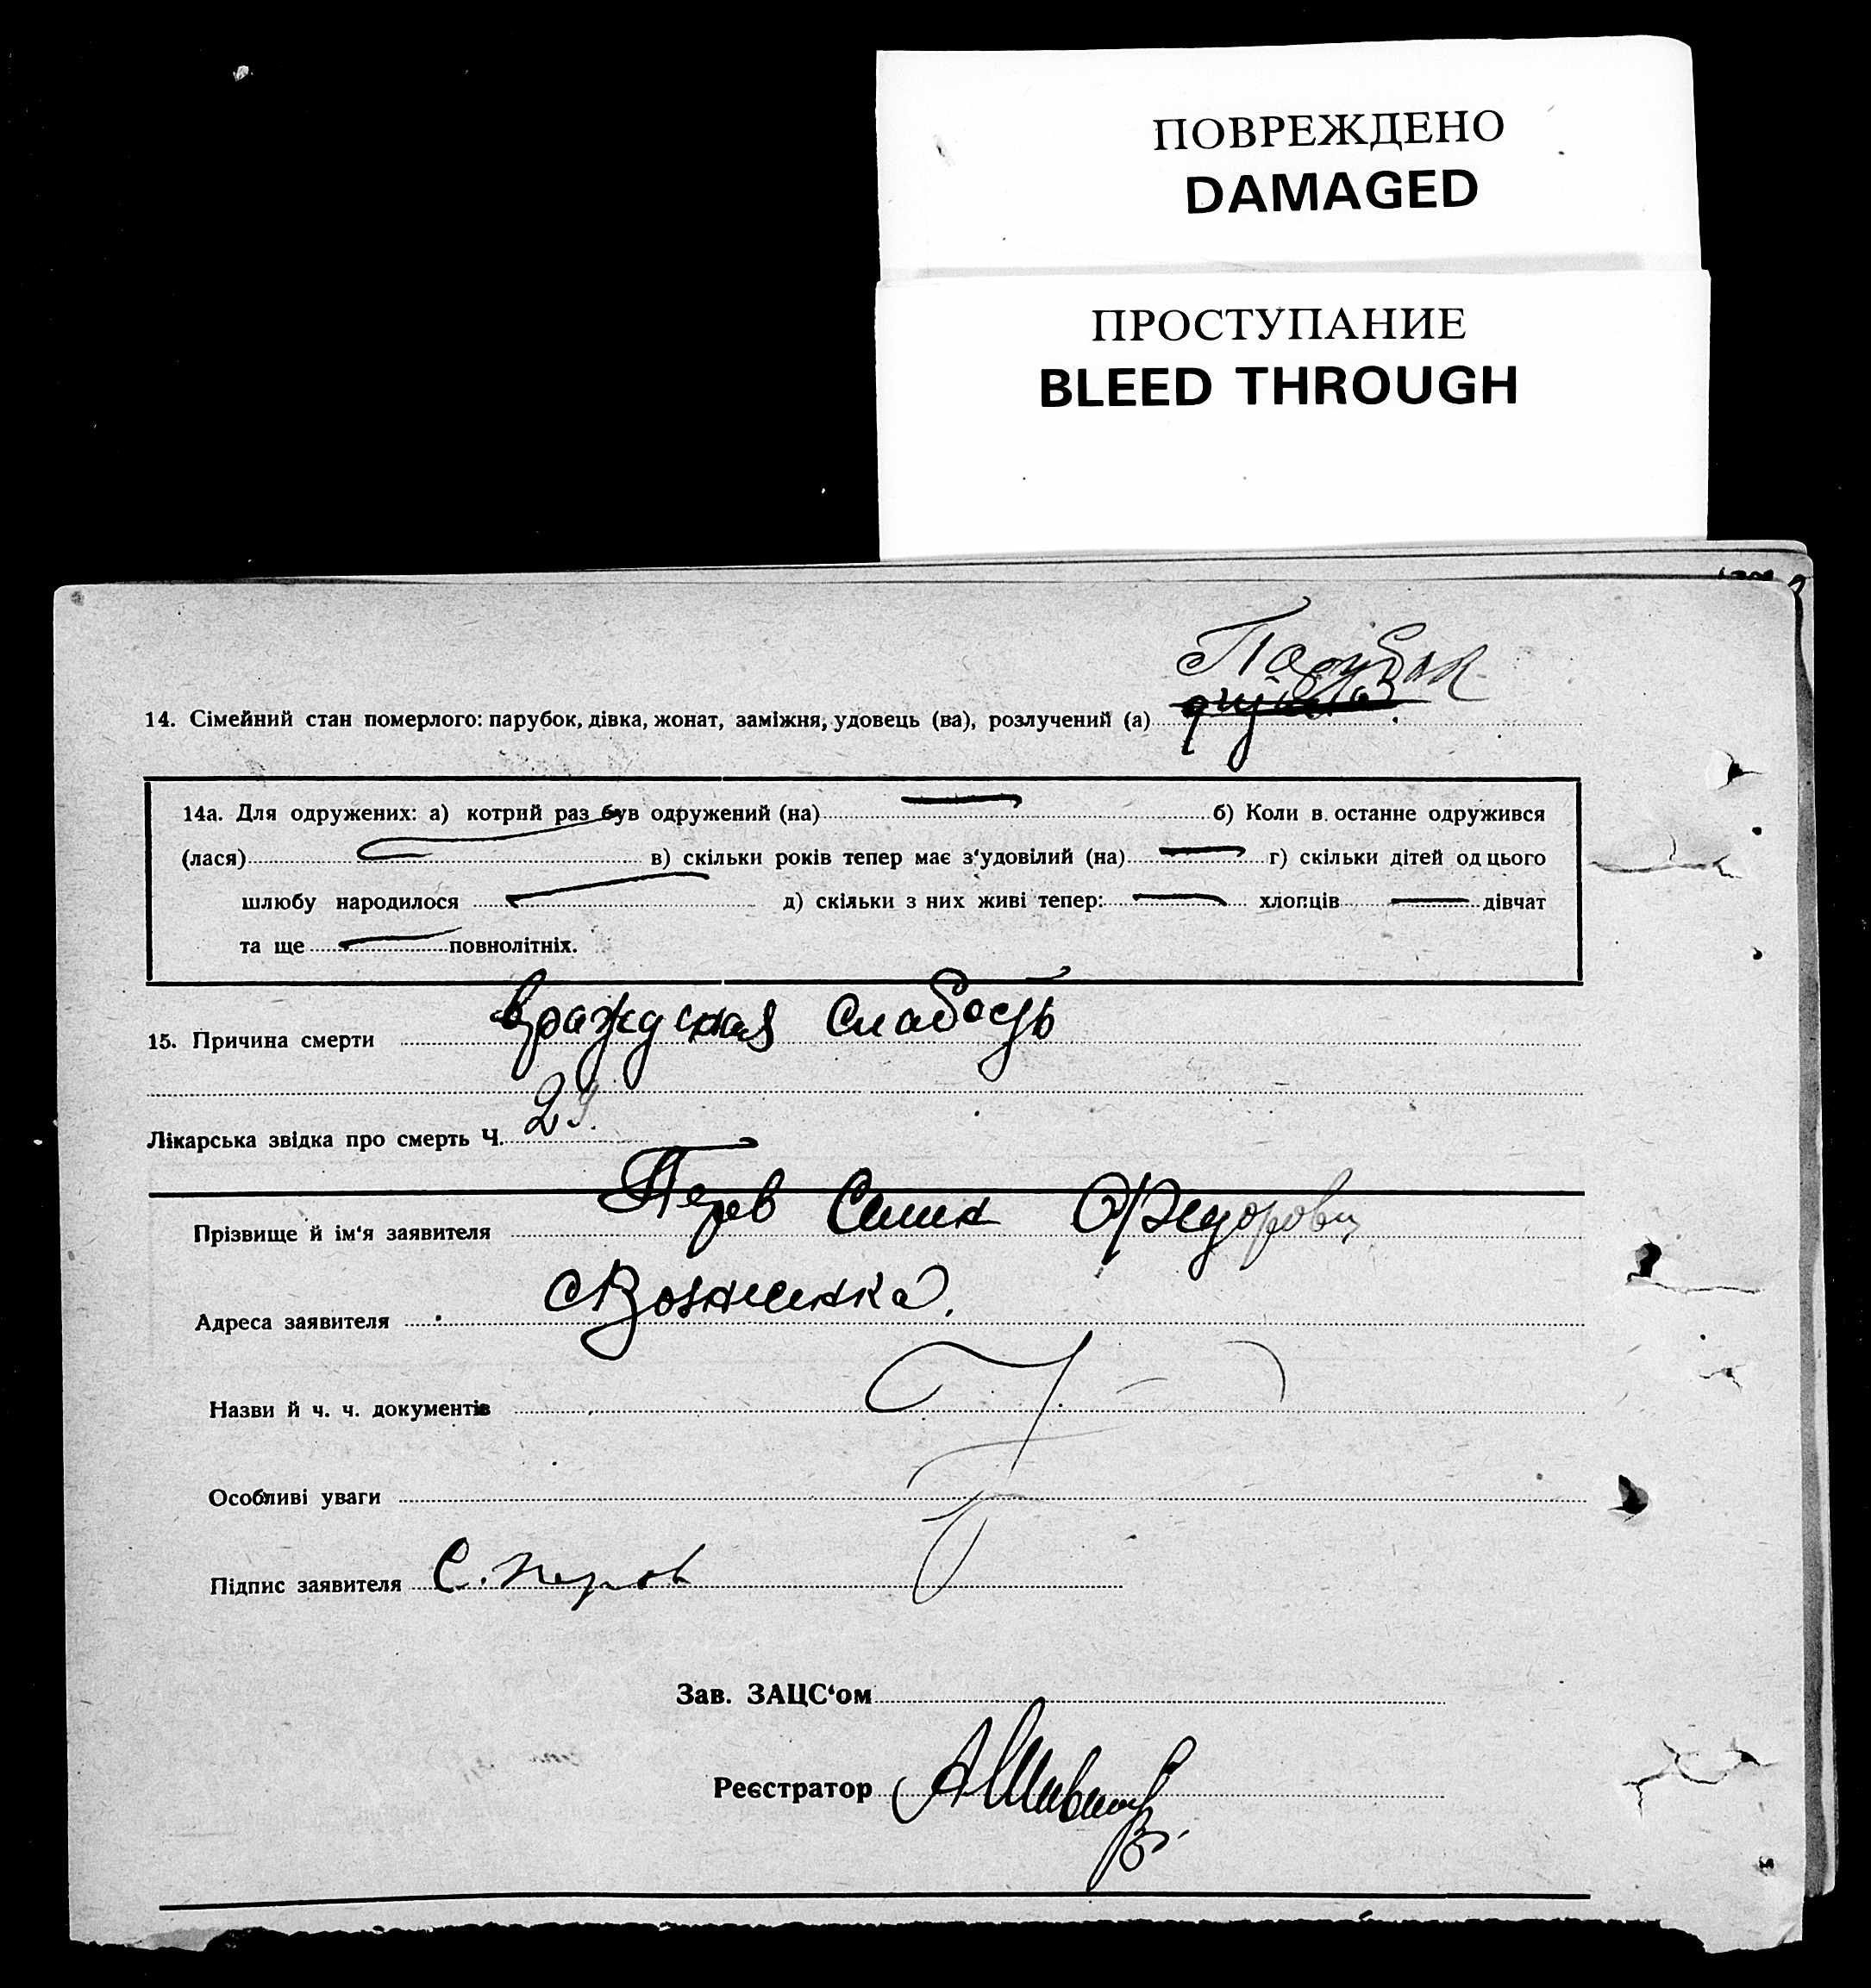 ПОВРЕЖДЕНО
DAMAGED
ПРОСТУПАНИЕ
BLEED THROUGH
Парубок
14. Сімейний стан померлого: парубок, дівка, жонат, заміжня, удовець (ва), розлучений (а)
14а. Для одружених: а) котрий раз був одружений (на) б) Коли в останне одружився
(лася) в) скільки років тепер має з‘удовілий (на) г) скільки дітей од цього
шлюбу народилося д) скільки з них живі тепер: хлопців дівчат
та ще повнолітніх.
15. Причина смерти слабость
Лікарська звідка про смерть Ч. 29.
Прізвище й ім‘я заявителя Перов Федорови
Адреса заявителя
Назви й ч. ч. документів
Особливі уваги
Підпис заявителя С. Перов
Зав. ЗАЦС‘ом
Реєстратор